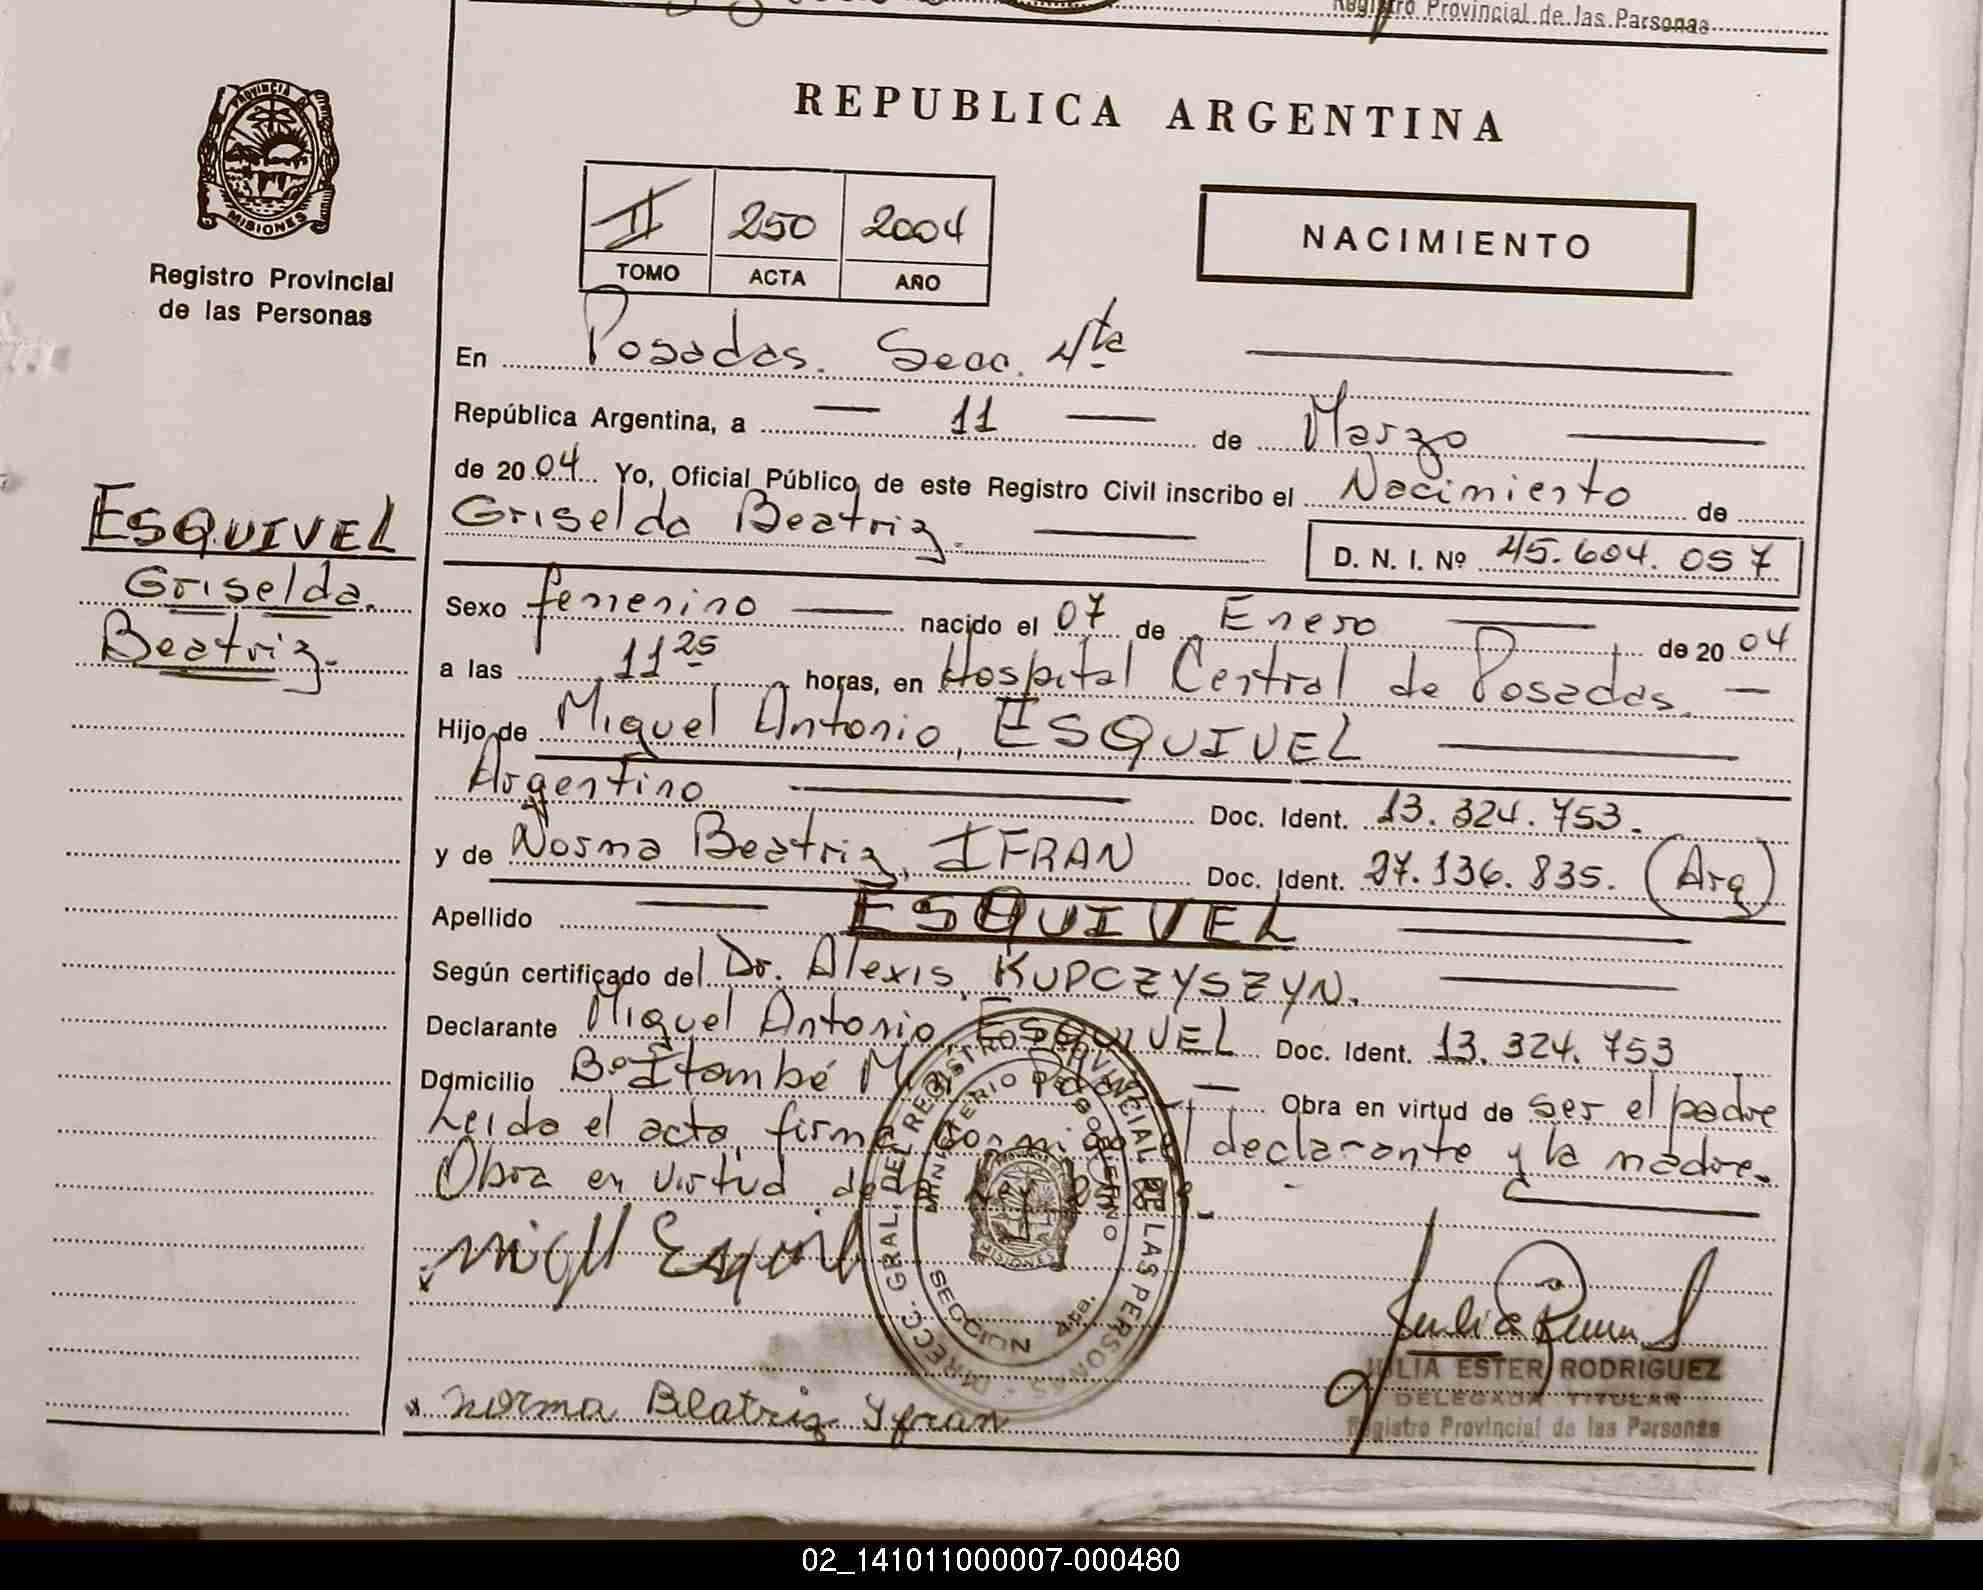 Registro Provincial de las Personas
PROVINCIA D
MISIONES
Registro Provincial
de las Personas
REPUBLICA ARGENTINA
II 250 2004
TOMO ACTA AÑO
NACIMIENTO
En Posadas. Secc. 4ta
República Argentina, a 11 de Marzo
de 2004 Yo, Oficial Público de este Registro Civil inscribo el Nacimiento de
Griselda Beatriz.
D. N. I. Nº 45.604.057
ESQUIVEL
Griselda
Beatriz.
Sexo femenino nacido el 07 de Enero de 2004
a las 11 25 horas, en Hospital Central de Posadas.
Hijo de Miguel Antonio, ESQUIVEL
Argentino Doc. Ident. 13.324.753.
y de Norma Beatriz, IFRAN Doc. Ident. 27.136.835. (Arg)
Apellido ESQUIVEL
Según certificado del Dr. Alexis KUPCZYSZYN.
Declarante Miguel Antonio ESQUIVEL Doc. Ident. 13.324.753
Domicilio Bº Itambé Pdas. Obra en virtud de ser el padre
Leida el acta, firma conmigo el declarante y la madre.
Obra en virtud de
DIRECC. GRAL. DEL REGISTRO PROVINCIAL DE LAS PERSONAS
MINISTERIO DE GOBIERNO
MISIONES
SECCION 4ta.
Norma Beatriz Yfran
JULIA ESTER RODRIGUEZ
DELEGADA TITULAR
Registro Provincial de las Personas
02_141011000007-000480